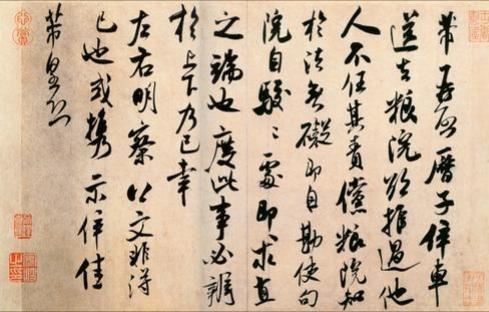 芾再啓曆子倅車
送去粮院欲推過他
人不任其責儻粮院知
於法無礙即自勘使句
院自駁〻處即求直
之端也度此事必辨
於上下乃已幸
左右明察以文非得
已也或攜示倅佳
芾皇恐